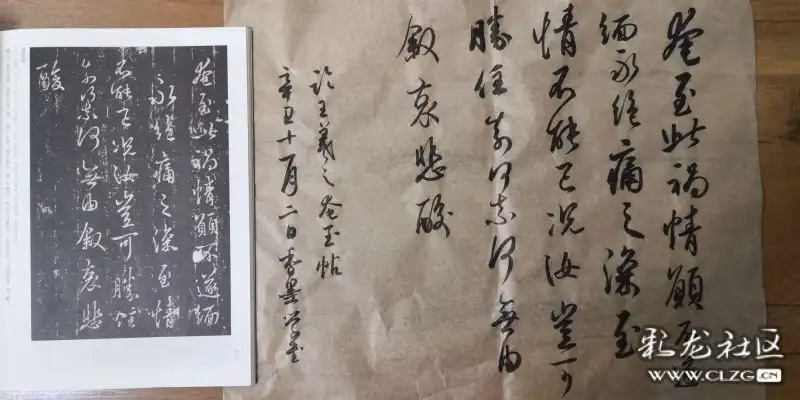 奄至此禍情願不遂
緬永絕痛之深至
情不能已況汝豈可
勝任奈何奈何無由
敘哀悲酸
临王羲之奄至帖
辛丑十一月二日
奄至此禍情願不遂緬
永絕痛之深至情
不能已況汝豈可勝任
奈何奈何無由敘哀悲
酸
彩龙社区
WWW.CLZG.CN